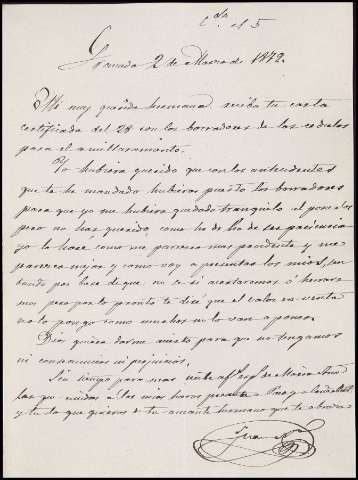 C.da el 5
Granada 2 de Marzo de 1872.
Mi muy querida hermana recibo tu carta
certificada del 28 con los borradores de las cedulas
para el amillaramiento.
Yo hubiera querido que con los antecedentes
que te he mandado hubieras puesto los borradores
para que yo me hubiera quedado tranquilo el ponerlas
pero no has querido, como ha de ser paciencia
yo la hare como me parezca mas prudente y me
parezca mejor y como voy a presentar los mios,
bando por base de que no se si acertaremos ó herrare
mos pero por lo pronto te dire que el valor en venta
no lo pongo como muchos no lo van a poner.
Dios quiera darme acierto para que no tengamos
ni consecuencias ni perjuicios.
Sin tiempo para mas de Maria
las que unidas a las mias haras presente a Paz y
y tu lo que quieras de tu amante hermano que te abraza
Juan